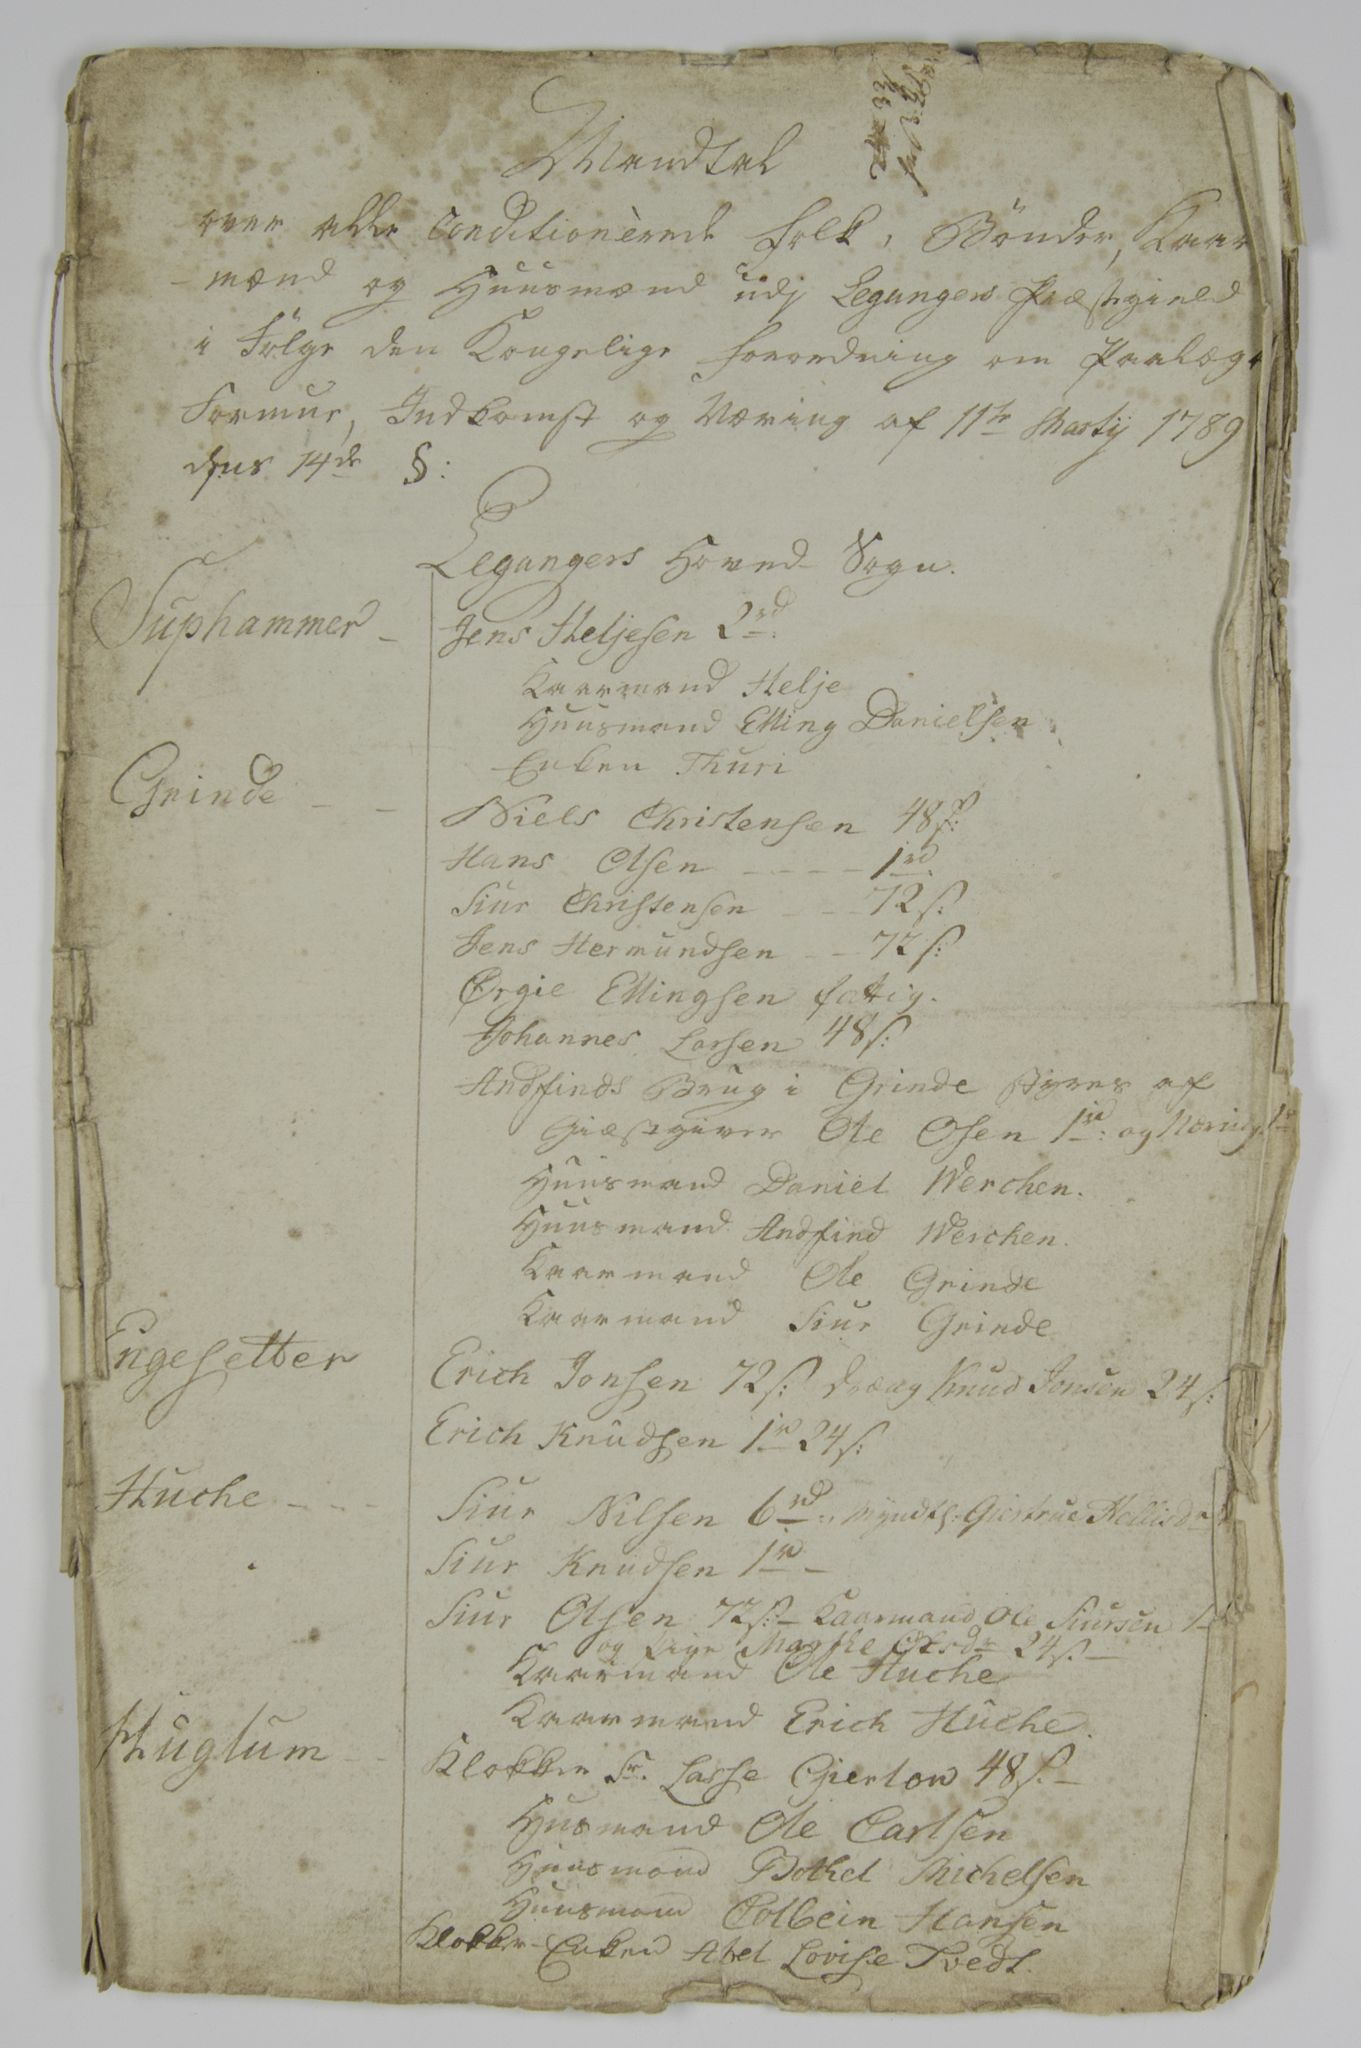 Mandtal
over alle Conditionerede folk, Bönder, Kaar
-mænd og Huusmænd udj Leganger Præstegield
i Fölge den Kongelige forordning om Paalæg
Formue, Indkomst og Næring af 11te Martij 1789
dens 14de §:
Legangers Hoved Sogn.
Suphammer - Jens Heljesen 2rd:
Kaarmand Helje
Huusmand Elling Danielsen
Enken Thuri
Grinde - - Niels Christensen 48s:
Hans Olsen - - - - 1rd:
Siur Christensen - - - 72s:
Jens Hermundsen - - 72s:
Ørgie Ellingsen fattig.
Johannes Larsen 48s:
Andfinds Brug i Grinde af
Giæstgiver Ole Olsen 1rd: og Næring 1rd
Huusmand Daniel Werchen.
Huusmand Andfind Werchen.
Kaarmand Ole Grinde
Kaarmand Siur Grinde
Engesetter Erich Jonsen 72s: dreng Knud Jonsen 24s:
Erich Knudsen 1rd 24s:
Huche - - - Siur Nilsen 6rd: Giertrue
Siur Knudsen 1rd -
Siur Olsen 72s:- Kaarmand Ole Siursen
og Pige Magthe Olsdr 24s -
Kaarmand Ole Huche
Kaarmand Erich Huche.
Huglum - - Klokker Sr. Lasse Giertow 48s. -
Husmand Ole Carlsen
Huusmand Bothel Michelsen
Huusmand Colbein Hansen
Klokker-Enken Abel Lovise Tvedt.